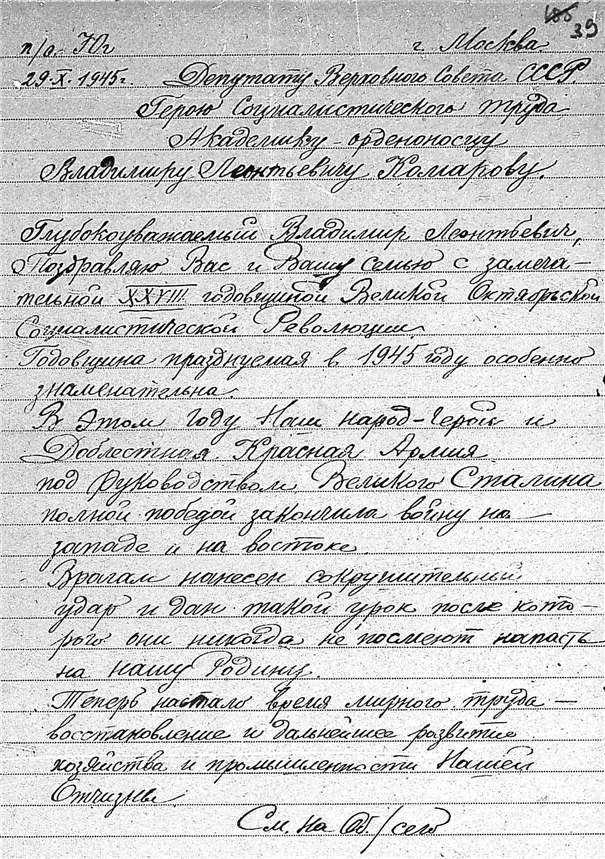 39
п/о. Юг г. Москва
29.X.1945г. Депутату Верховного Совета СССР
Герою Социалистического труда
Академику-орденоносцу
Владимиру Леонтьевичу Комарову.
Глубокоуважаемый Владимир Леонтьевич,
Поздравляю Вас и Вашу семью с замеча-
тельной XXVIII годовщиной Великой Октябрьской
Социалистической Революции.
Годовщина празднуемая в 1945 году особенно
знаменательна.
В этом году Наш народ-Герой и
Доблестная Красная Армия
под руководством Великого Сталина
полной победой закончила войну на
западе и на востоке.
Врагам нанесен сокрушительный
удар и дан такой урок после кото-
рого они никогда не посмеют напасть
на нашу Родину.
Теперь настало время мирного труда —
восстановление и дальнейшее развитие
хозяйства и промышленности Нашей
Отчизны.
См. на об./сего